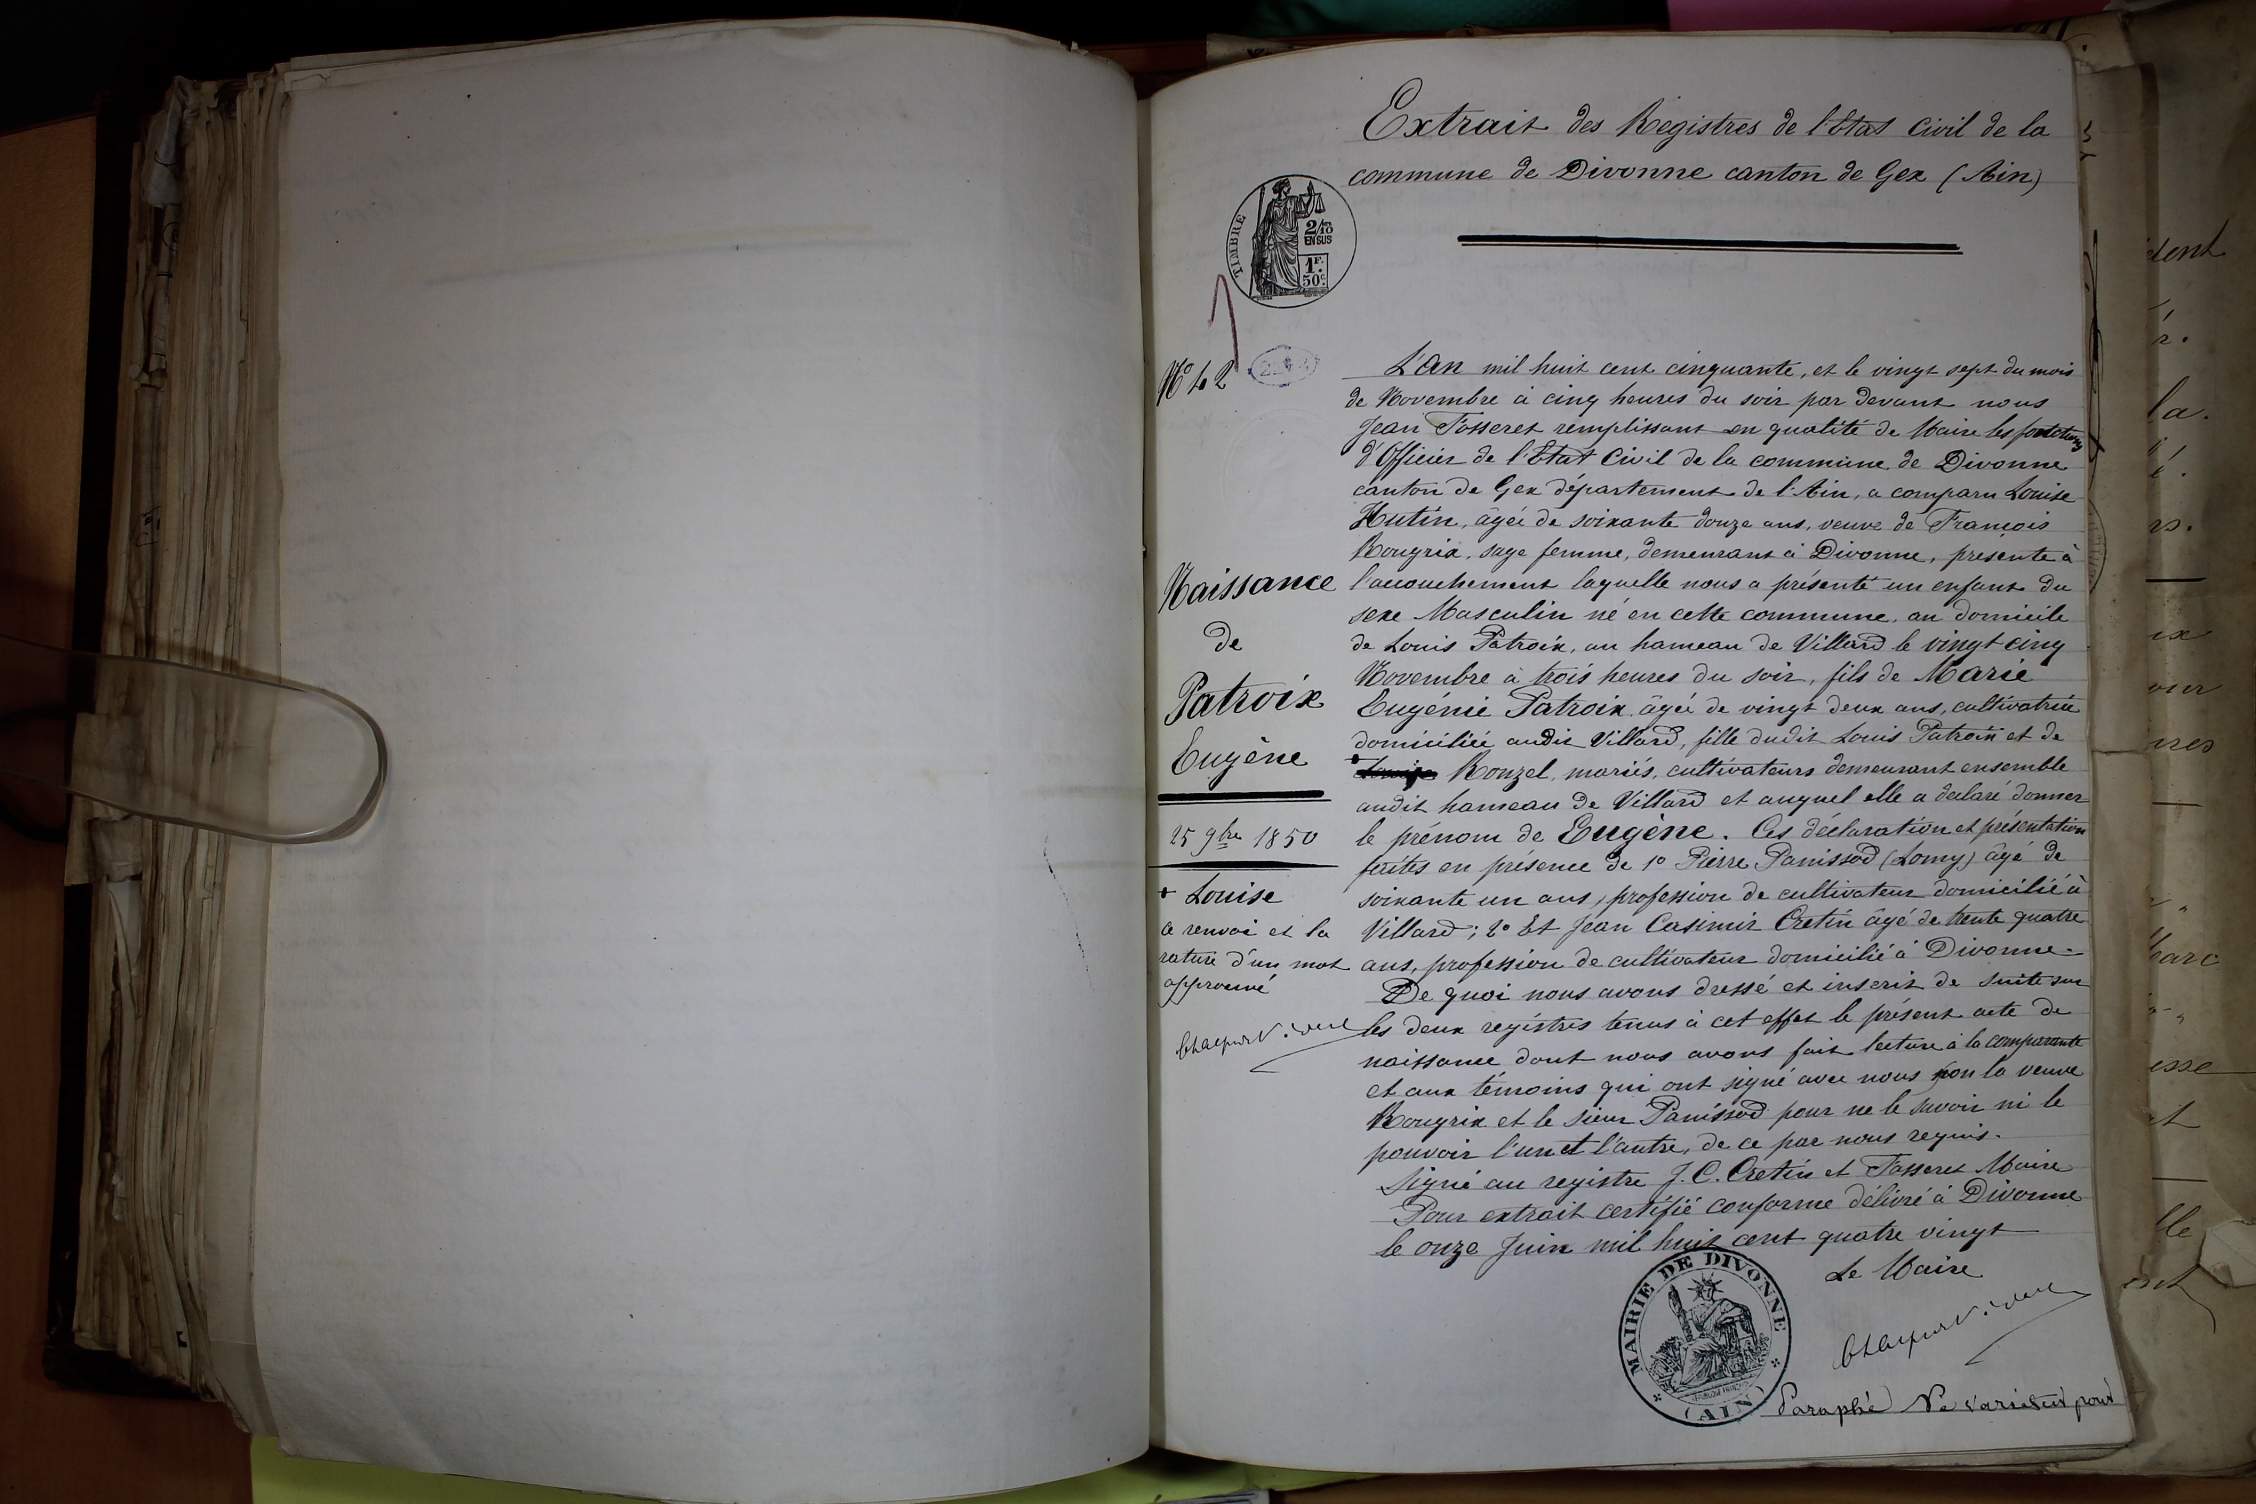 Extrait des Registres de l'Etat Civil de la
commune de Divonne canton de Gex (Ain)
TIMBRE
2/10
EN SUS
1F.
50c.
N° 42
L'An mil huit cent cinquante, et le vingt sept du mois
de Novembre à cinq heures du soir par devant nous
Jean Fosseret remplissant en qualité de Maire les fonctions
d'Officier de l'Etat Civil de la commune de Divonne
canton de Gex département de l'Ain, a comparu Louise
Hutin, âgée de soixante douze ans, veuve de François
Rougrix, sage femme, demeurant à Divonne, présente à
l'accouchement laquelle nous a présenté un enfant du
sexe Masculin né en cette commune, au domicile
de Louis Patroix, au hameau de Villard le vingt cinq
Novembre à trois heures du soir, fils de Marie
Eugénie Patroix, âgée de vingt deux ans, cultivatrice
domiciliée audit Villard, fille dudit Louis Patroix et de
Rouzel, mariés, cultivateurs demeurant ensemble
audit hameau de Villard et auquel elle a déclaré donner
le prénom de Eugène. Ces déclaration et présentation
faites en présence de 1° Pierre Panissod (Lomy) âgé de
soixante un ans, profession de cultivateur domicilié à
Villard; 2° Et Jean Casimir Cretin âgé de trente quatre
ans, profession de cultivateur domicilié à Divonne-
De quoi nous avons dressé et inscrit de suite sur
les deux registres tenus à cet effet le présent acte de
naissance dont nous avons fait lecture à la comparante
et aux témoins qui ont signé avec nous non la veuve
Rougrix et le sieur Panissod pour ne le savoir ni le
pouvoir l'un et l'autre, de ce par nous requis.
Signé au registre J. C. Cretin et Fosseret Maire
Pour extrait certifié conforme délivré à Divonne
le onze Juin mil huit cent quatre vingt
Le Maire
Naissance
de
Patroix
Eugène
25 9bre 1850
+ Louise
ce renvoi et la
rature d'un mot
approuvé
MAIRIE DE DIVONNE
(AIN)
Paraphé Ne varietur pour